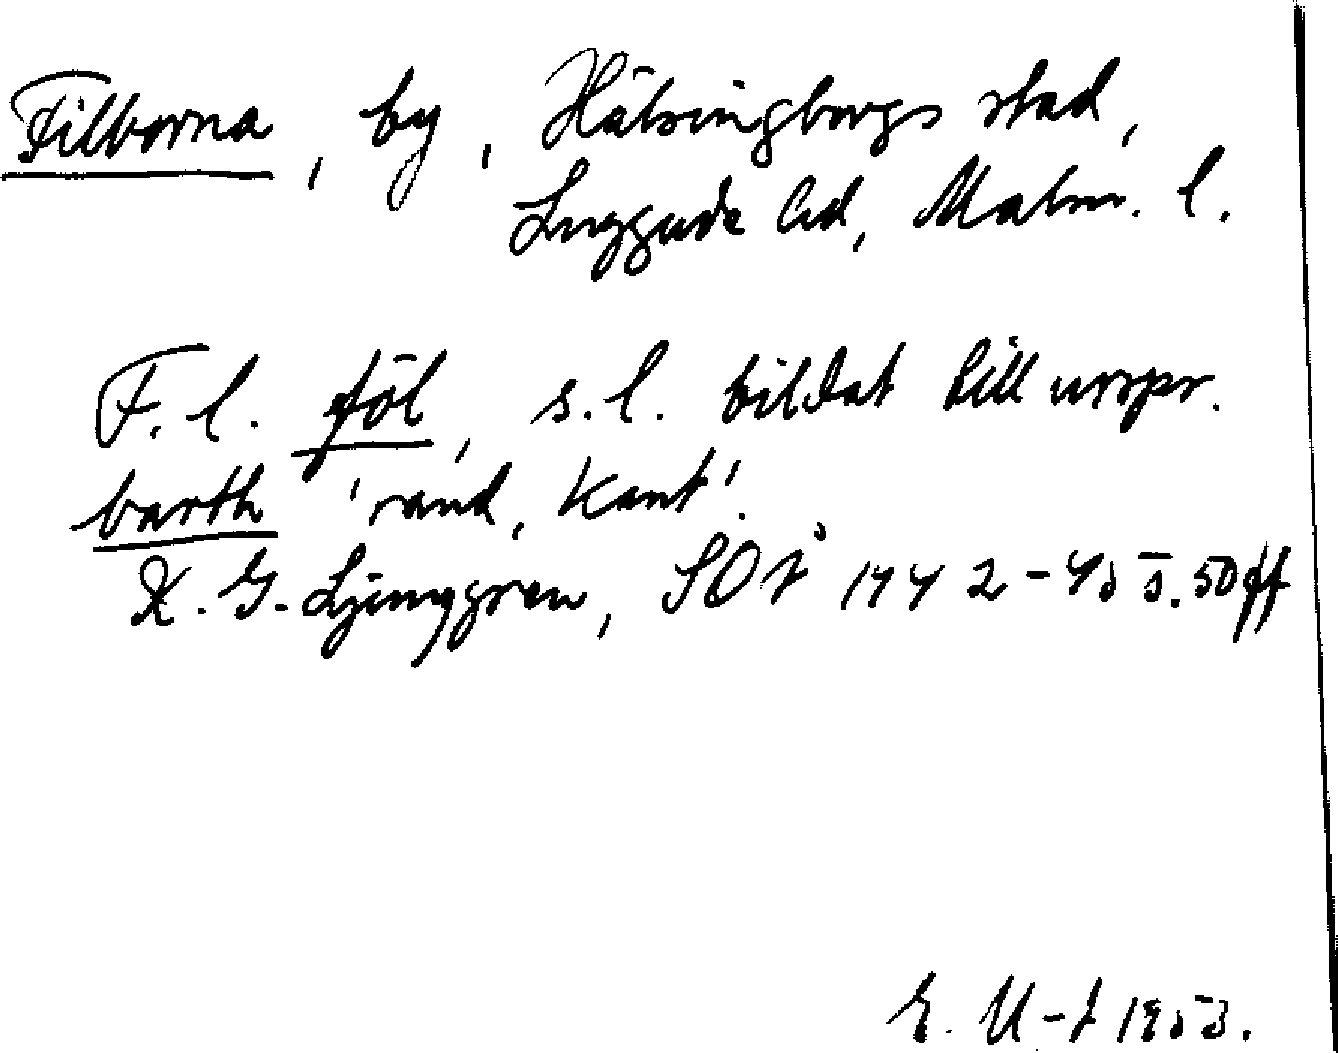 Filborna, by, Hälsingborgs stad,
Luggude hd, Malm. l.
F. l. föl, s. l. bildat till urspr.
barth 'rand, kant'.
K. G. Ljunggren, SOÅ 1942-43 s. 50 ff
E. U-t 1953.